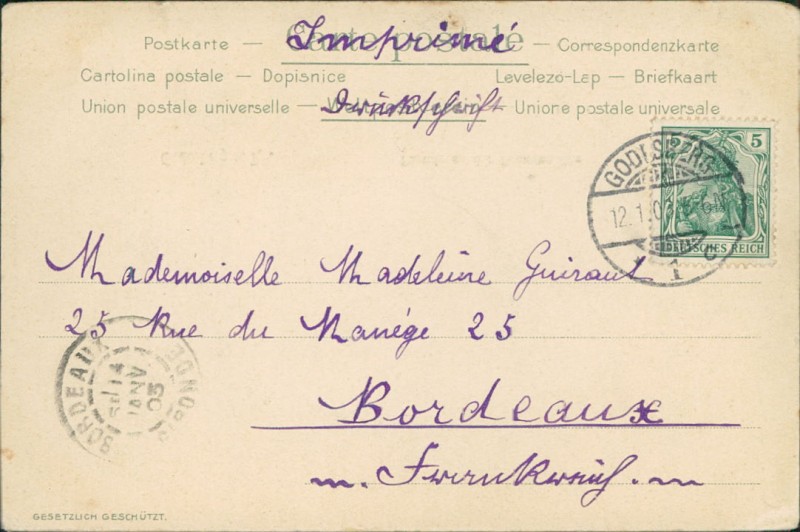 Carte postale
Imprimé
Postkarte — — Correspondenzkarte
Cartolina postale — Dopisnice Levelező-Lap — Briefkaart
Union postale universelle — Weltpostverein — Unione postale universale
Drückschrift
5
DEUTSCHES REICH
GODESBERG
12.1.03
1 c
Mademoiselle Madeleine Guiraut
25 Rue du Manége 25
Bordeaux
Frankreich.
BORDEAUX GIRONDE
14
JANV
03
GESETZLICH GESCHÜTZT.